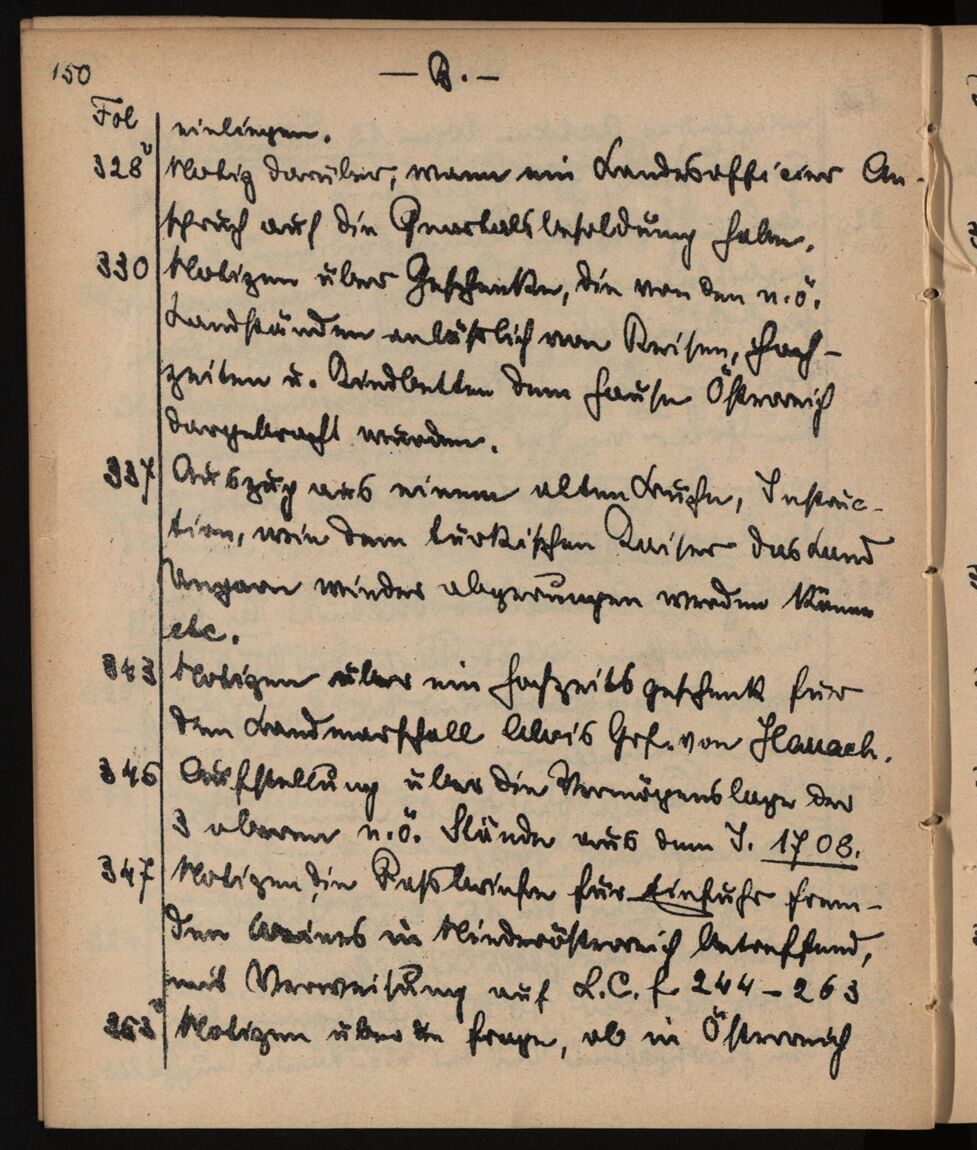 150
— B. —
Fol
einliegen.
328v Notiz darüber, wann ein Landesofficier An-
spruch auf die Quartalsbesoldung habe.
330 Notizen über Geschenke, die von den n.ö.
Landständen anläßlich von Reisen, Hoch-
zeiten u. Kindbetten dem Hause Österreich
dargebracht wurden.
337 Auszug aus einem alten Buche, Instruc-
tion, wie dem türkischen Kaiser das Land
Ungarn wieder abgerungen werden könne
etc.
343 Notizen über ein Hochzeitsgeschenk für
den Landmarschall Alois Grf. von
346 Aufstellung über die Vermögenslage der
3 oberen n.ö. Stände aus dem J. 1708.
347 Notizen die Paßbriefe für Einfuhr frem-
den Weines in Niederösterreich betreffend,
mit Verweisung auf L.C. f. 244–263
353v Notizen über die Frage, ob in Österreich